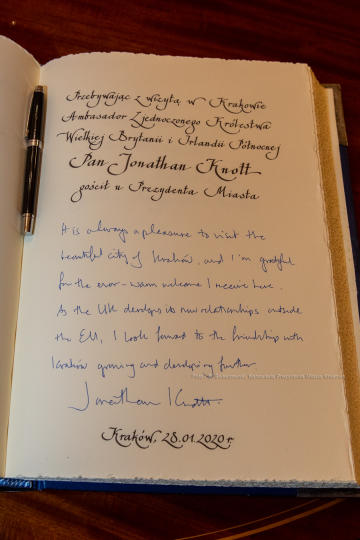 Przebywając z wizytą w Krakowie
Ambasador Zjednoczonego Królestwa
Wielkiej Brytanii i Irlandii Północnej
Pan Jonathan Knott
gościł u Prezydenta Miasta
It is always a pleasure to visit the
beautiful city of Kraków, and I'm grateful
for the ever-warm welcome I receive here.
As the UK develops its new relationships outside
the EU, I look forward to the friendship with
Kraków growing and developing further
Jonathan Knott.
Kraków, 28.01.2020 r.